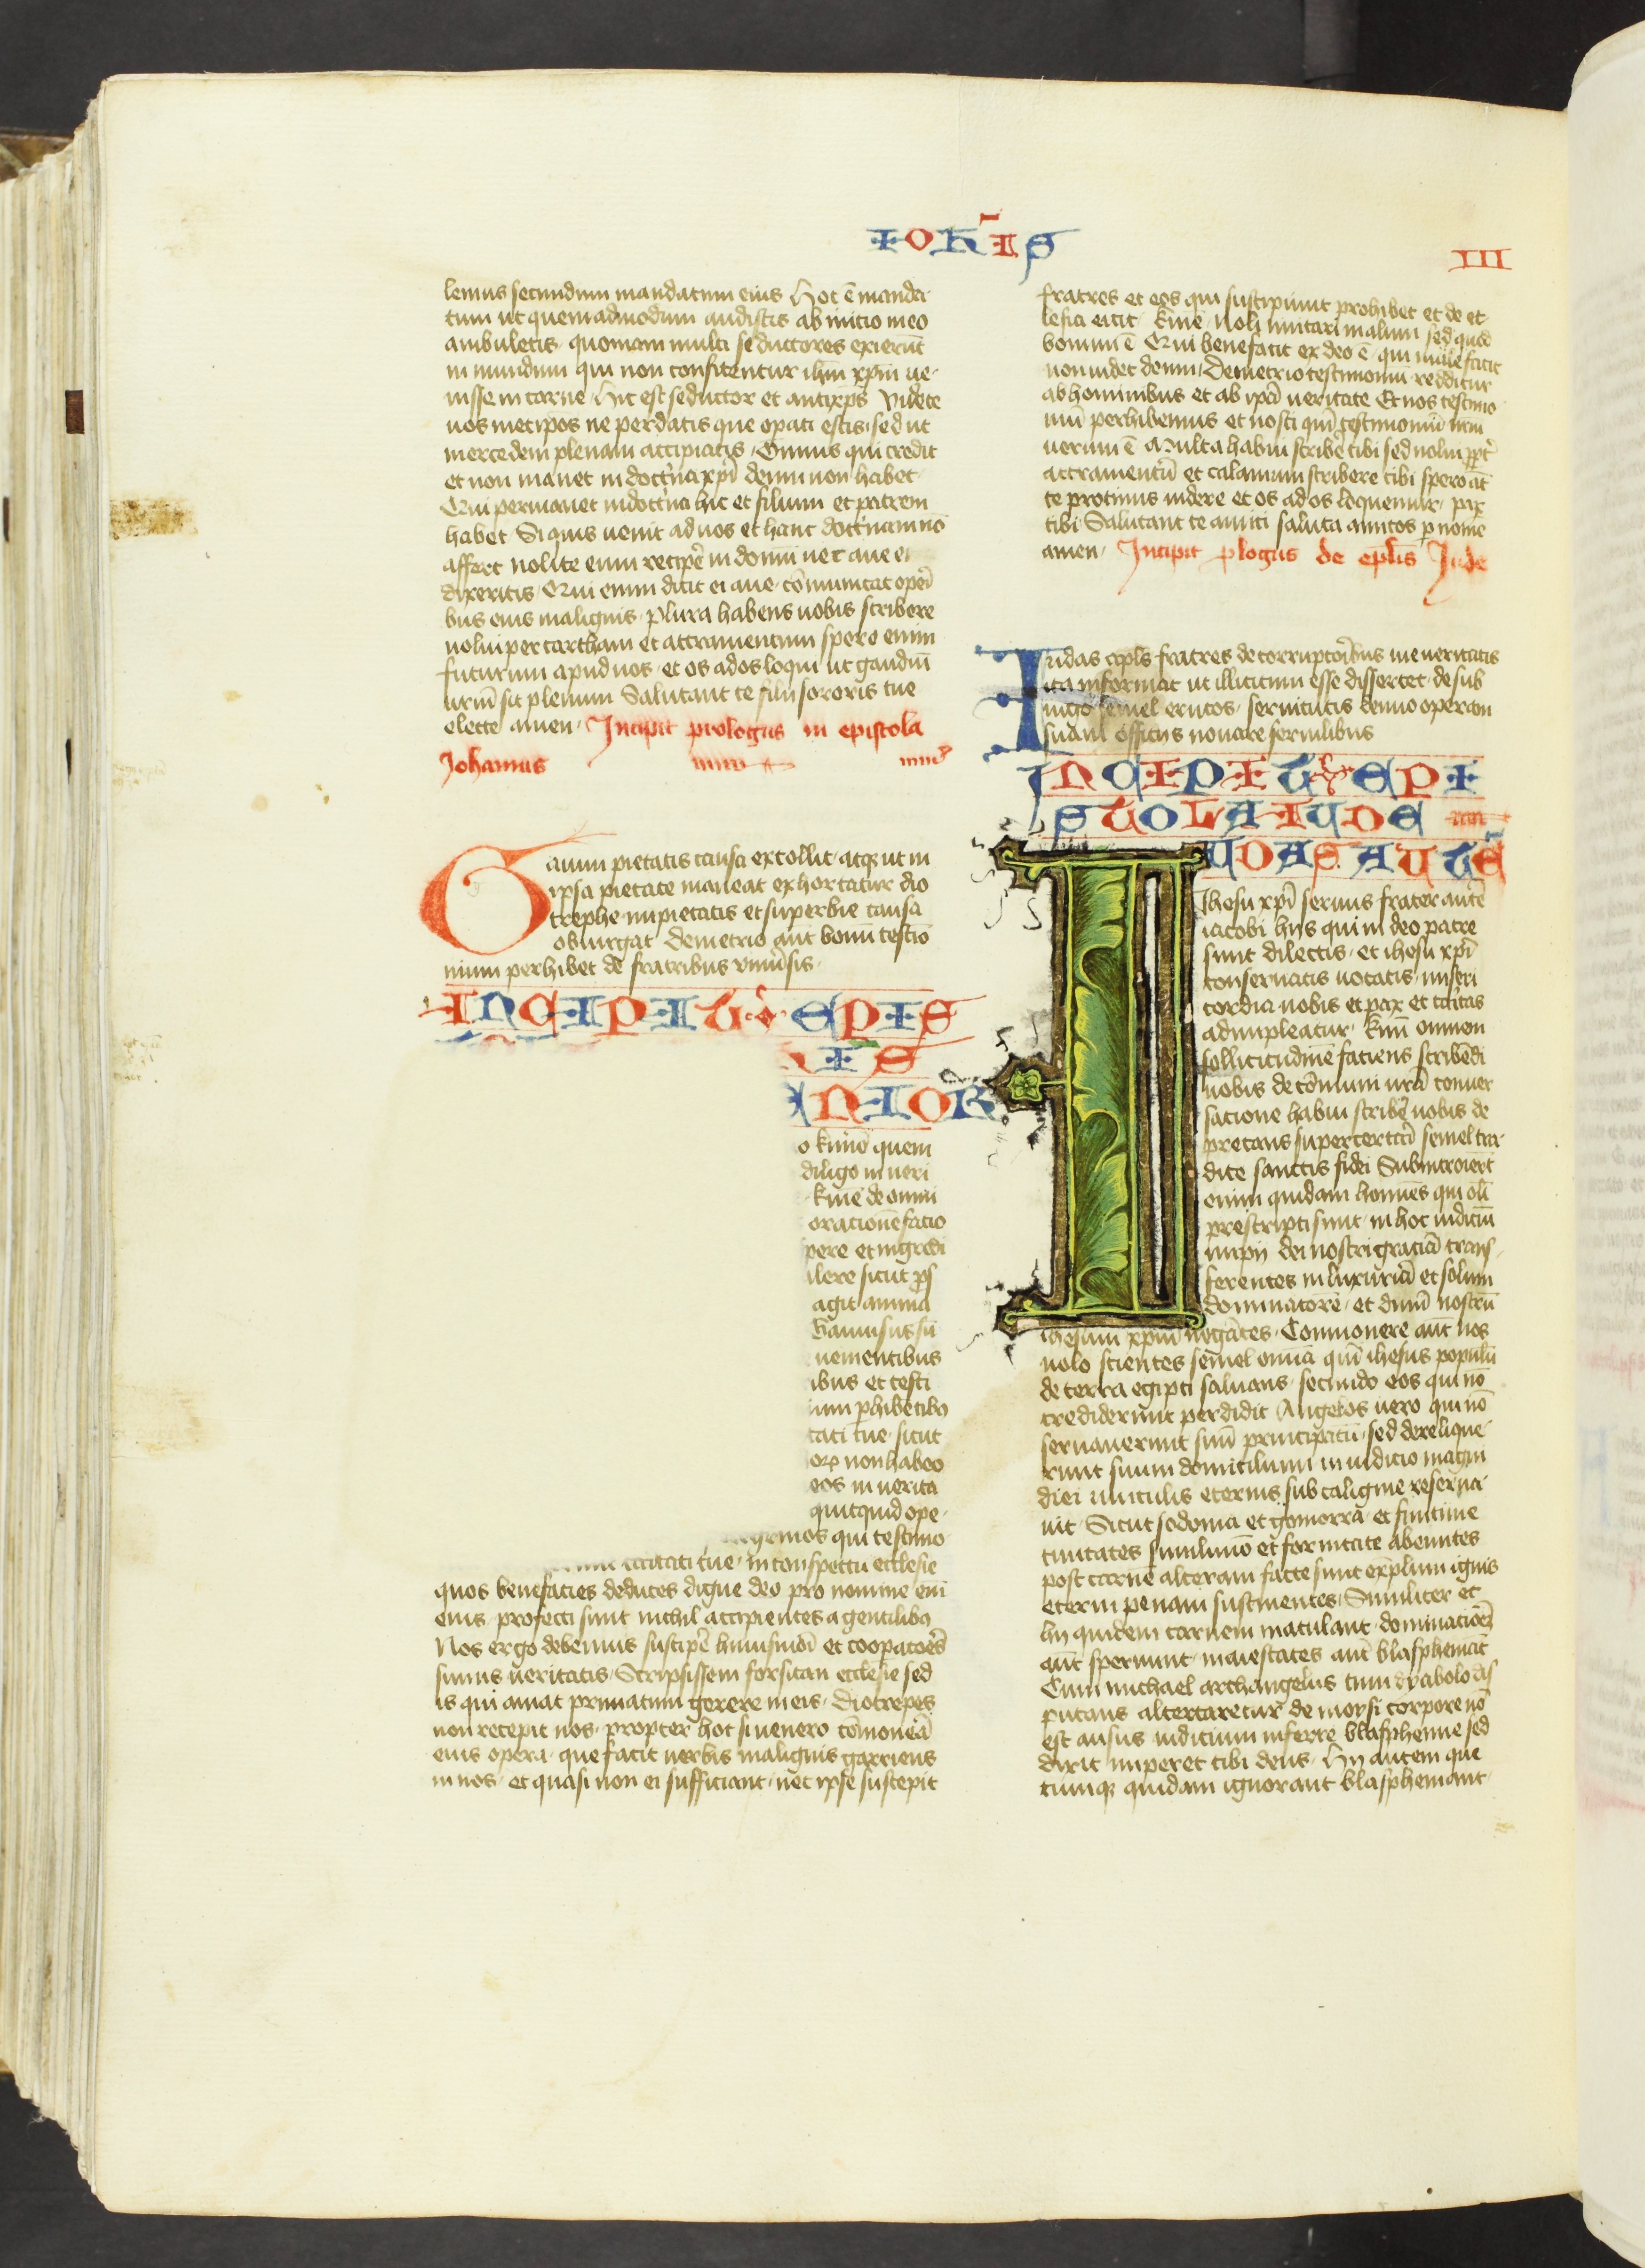 IOHIS
III
lemus secundum mandatum eius Hoc ē manda
tum ut quemadmodum audistis ab inicio in eo
ambuletis quoniam multi seductores exierūt
in mundum qui non confitentur ihm xpm ue
nisse in carne Hic est seductor et antixps Videte
uos metipos ne perdatis que opati estis sed ut
mercedem plenam accipiatis Omnis qui credit
et non manet in doctna xpi deum non habet
Qui permanet in doctna hic et filium et patrem
habet Si quis uenit ad uos et hanc doctnam nō
affert nolite eum recipe in domū nec aue ei
dixeritis Qui enim dicit ei aue cōmunicat opei
bus eius malignis plura habens uobis scribere
nolui per cartham et attramentum spero enim
futurum apud uos et os ad os loqui ut gaudiū
urm sit plenum Salutant te filii sororis tue
electe amen Incipit prologus in epistola
Johannis
Gaium pietatis causa extollit atqz ut in
ipsa pietate maneat exhortatur dio
trephe impietatis et superbie causa
obiurgat Demetrio aut bonū testio
nium perhibet de fratribus vniusis
INCIPIT EPIS
IS
NIOR
o kimē quem
diligo in ueri
kme de omni
orationē facio
pere et ingredi
ilere sicut ps
agit anima
Gauisus sū
uenientibus
ibus et testi
ium phibētibz
tati tue sicut
orē non habeo
eos in uerita
quitquid ope
egrinos qui testimo
caritati tue in conspectu ecclesie
quos benefacies deducēs digne deo pro nomine enī
eius profecti sunt nichil accipientes a gentilibz
Nos ergo debemus suscipe huiusmōi et coopatoēs
simus ueritatis Scripsissem forsitan ecclesie sed
is qui amat primatum gerere in eis Diotrepes
non recepit nos propter hoc si uenero cōmoneā
eius opera que facit uerbis malignis garriens
in nos et quasi non ei sufficiant nec ipse suscepit
fratres et eos qui suscipiunt prohibet et de ec
lesia eicit kme noli imitari malum sed quod
bonum ē Qui benefacit ex deo ē qui male facit
non uidet deum Demetrio testimoniū redditur
ab hominibus et ab ipā ueritate Et nos testimo
niū perhibemus et nosti qm testimoniū nrm
uerum ē Multa habui scribē tibi sed nolui ppt
attramentū et calamum scribere tibi spero aūt
te protinus uidere et os ad os loquemur pax
tibi Salutant te amici saluta amicos p nome
amen Incipit plogus de eplis Jude
Iudas apls fratres de corruptoribus uie ueritatis
ita informat ut illicitum esse dissereret de sub
iugo semel erutos seruitutis denuo operam
suam officiis nouare seruilibus
INCIPIT EPI
STOLA IUDE
IUDAS AUTĒ
Ihesu xpi seruus frater autē
iacobi hys qui in deo patre
sunt dilectis et ihesu xpi
conseruatis uocatis miseri
cordia uobis et pax et caritas
adimpleatur kmi omnem
sollicitudinē faciens scribēdi
uobis de cōmuni urā conuer
satione habui scribē uobis de
precans supercertari semel tra
dite sanctis fidei Subintroierūt
enim quidam homines qui olī
prescripti sunt in hoc iudiciū
impii dei nostri gratiā trans
ferentes in luxuriā et solum
dominatorē et dnm nostrū
ihesum xpm negātes Commonere aut uos
uolo scientes semel omnia qm ihesus populū
de terra egipti saluans secundo eos qui nō
crediderunt perdidit Angelos uero qui nō
seruauerunt suū principatū sed derelique
runt suum domicilium in iudicio magni
diei uinculis eternis sub caligine reserua
uit Sicut sodoma et gomorra et finitime
ciuitates simili mō et fornicate abeuntes
post carnē alteram facte sunt exēplum ignis
eterni penam sustinentes Similiter et
hii quidem carnem maculant dominationē
aut spernunt maiestates aut blasphemāt
Cum michael archangelus cum dyabolo dis
putans altercaretur de moysi corpore nō
est ausus iudicium inferre blasphemie sed
dixit imperet tibi deus Hii autem que
cumqz quidam ignorant blasphemant